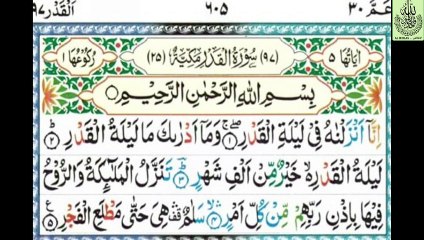 عَمَّ ٣٠ ٦٠٥ اَلْقَدْر ٩٧
اٰيَاتُهَا ٥ (٩٧) سُوْرَةُ الْقَدْرِ مَكِّيَّةٌ (٢٥) رُكُوْعُهَا ١
بِسْمِ اللّٰهِ الرَّحْمٰنِ الرَّحِيْمِ
اِنَّاۤ اَنْزَلْنٰهُ فِيْ لَيْلَةِ الْقَدْرِ ۚۖ ١ وَمَاۤ اَدْرٰىكَ مَا لَيْلَةُ الْقَدْرِ ؕ ٢
لَيْلَةُ الْقَدْرِ ۙ خَيْرٌ مِّنْ اَلْفِ شَهْرٍ ؕ ٣ تَنَزَّلُ الْمَلٰٓئِكَةُ وَالرُّوْحُ
فِيْهَا بِاِذْنِ رَبِّهِمْ مِّنْ كُلِّ اَمْرٍ ۛ ٤ سَلٰمٌ ۛ هِيَ حَتّٰى مَطْلَعِ الْفَجْرِ ٥ ع